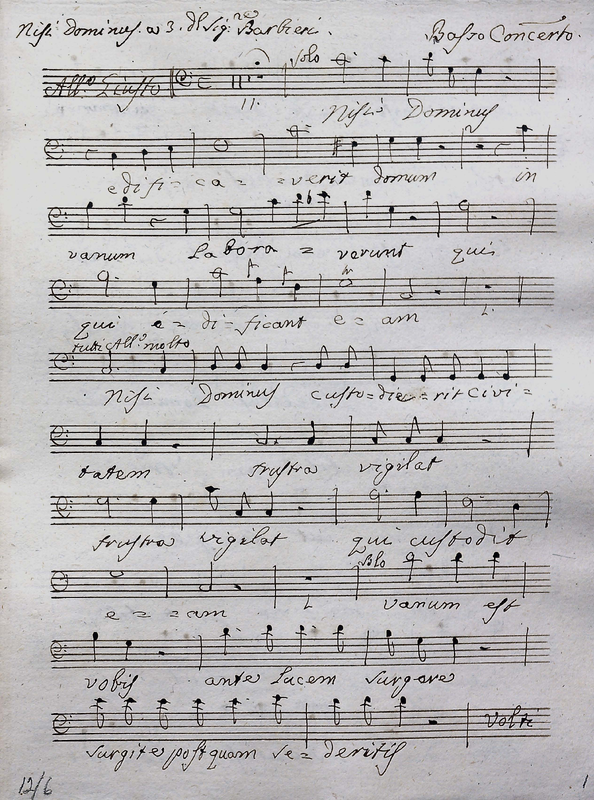 Nisi Dominus. a 3. del Sig.re Barbieri.
Basso Concerto.
All.o Giusto
11.
Solo
Nisi Dominus
edifi= ca= =verit domum in
vanum labora = verunt qui
qui é= di= ficant e= am
1.
tutti All.o molto
Nisi Dominus Custo=die=rit Civi=
tatem frustra vigilat
frustra vigilat qui custodit
e = = am
1
Solo
vanum est
vobis ante lucem surgere
surgite postquam se= deritis
Volti
12/6
1